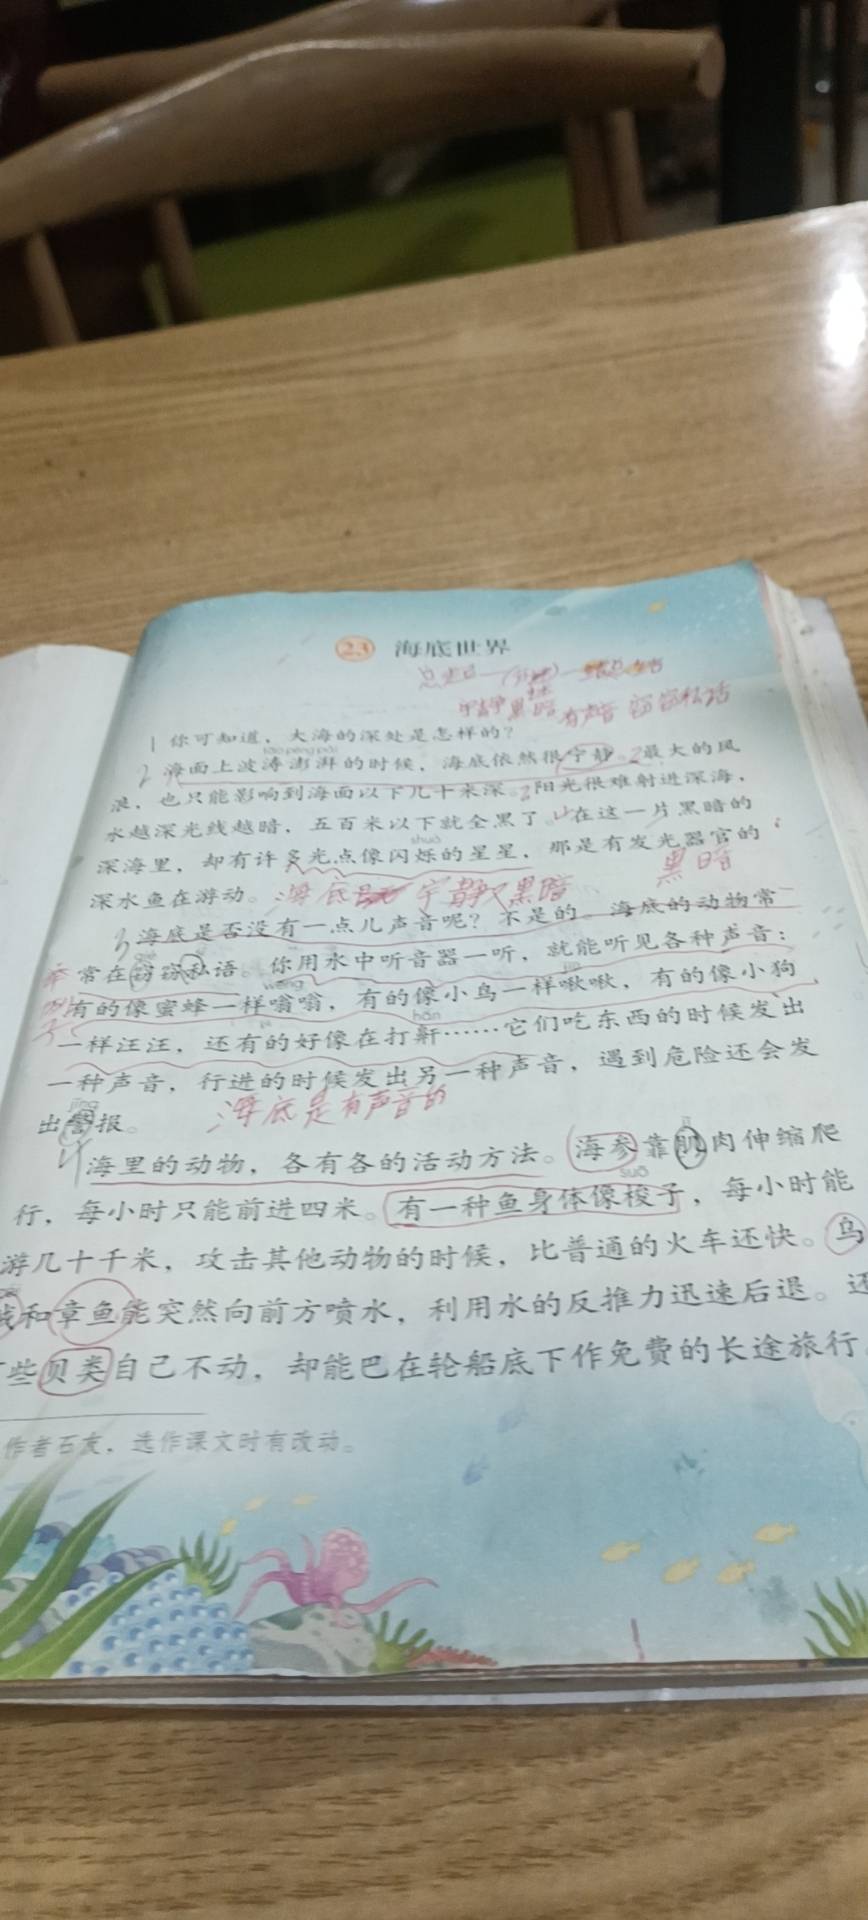 23 海底世界
宁静 黑暗 有声音 窃窃私语
1 你可知道，大海的深处是怎样的？
tāo péng pài
2 海面上波涛澎湃的时候，海底依然很宁静。最大的风
浪，也只能影响到海面以下几十米深。阳光很难射进深海，
水越深光线越暗，五百米以下就全黑了。在这一片黑暗的
shuò
深海里，却有许多光点像闪烁的星星，那是有发光器官的
黑暗
深水鱼在游动。海底 宁静 黑暗
3 海底是否没有一点儿声音呢？不是的。海底的动物常
常在窃窃私语。你用水中听音器一听，就能听见各种声音：
wēng jiū
举例子
有的像蜜蜂一样嗡嗡，有的像小鸟一样啾啾，有的像小狗
hān
一样汪汪，还有的好像在打鼾……它们吃东西的时候发出
一种声音，行进的时候发出另一种声音，遇到危险还会发
jǐng
出警报。 海底是有声音的
4 海里的动物，各有各的活动方法。海参靠肌肉伸缩爬
suō
行，每小时只能前进四米。有一种鱼身体像梭子，每小时能
游几十千米，攻击其他动物的时候，比普通的火车还快。乌
贼和章鱼能突然向前方喷水，利用水的反推力迅速后退。还
些贝类自己不动，却能巴在轮船底下作免费的长途旅行
作者石友，选作课文时有改动。